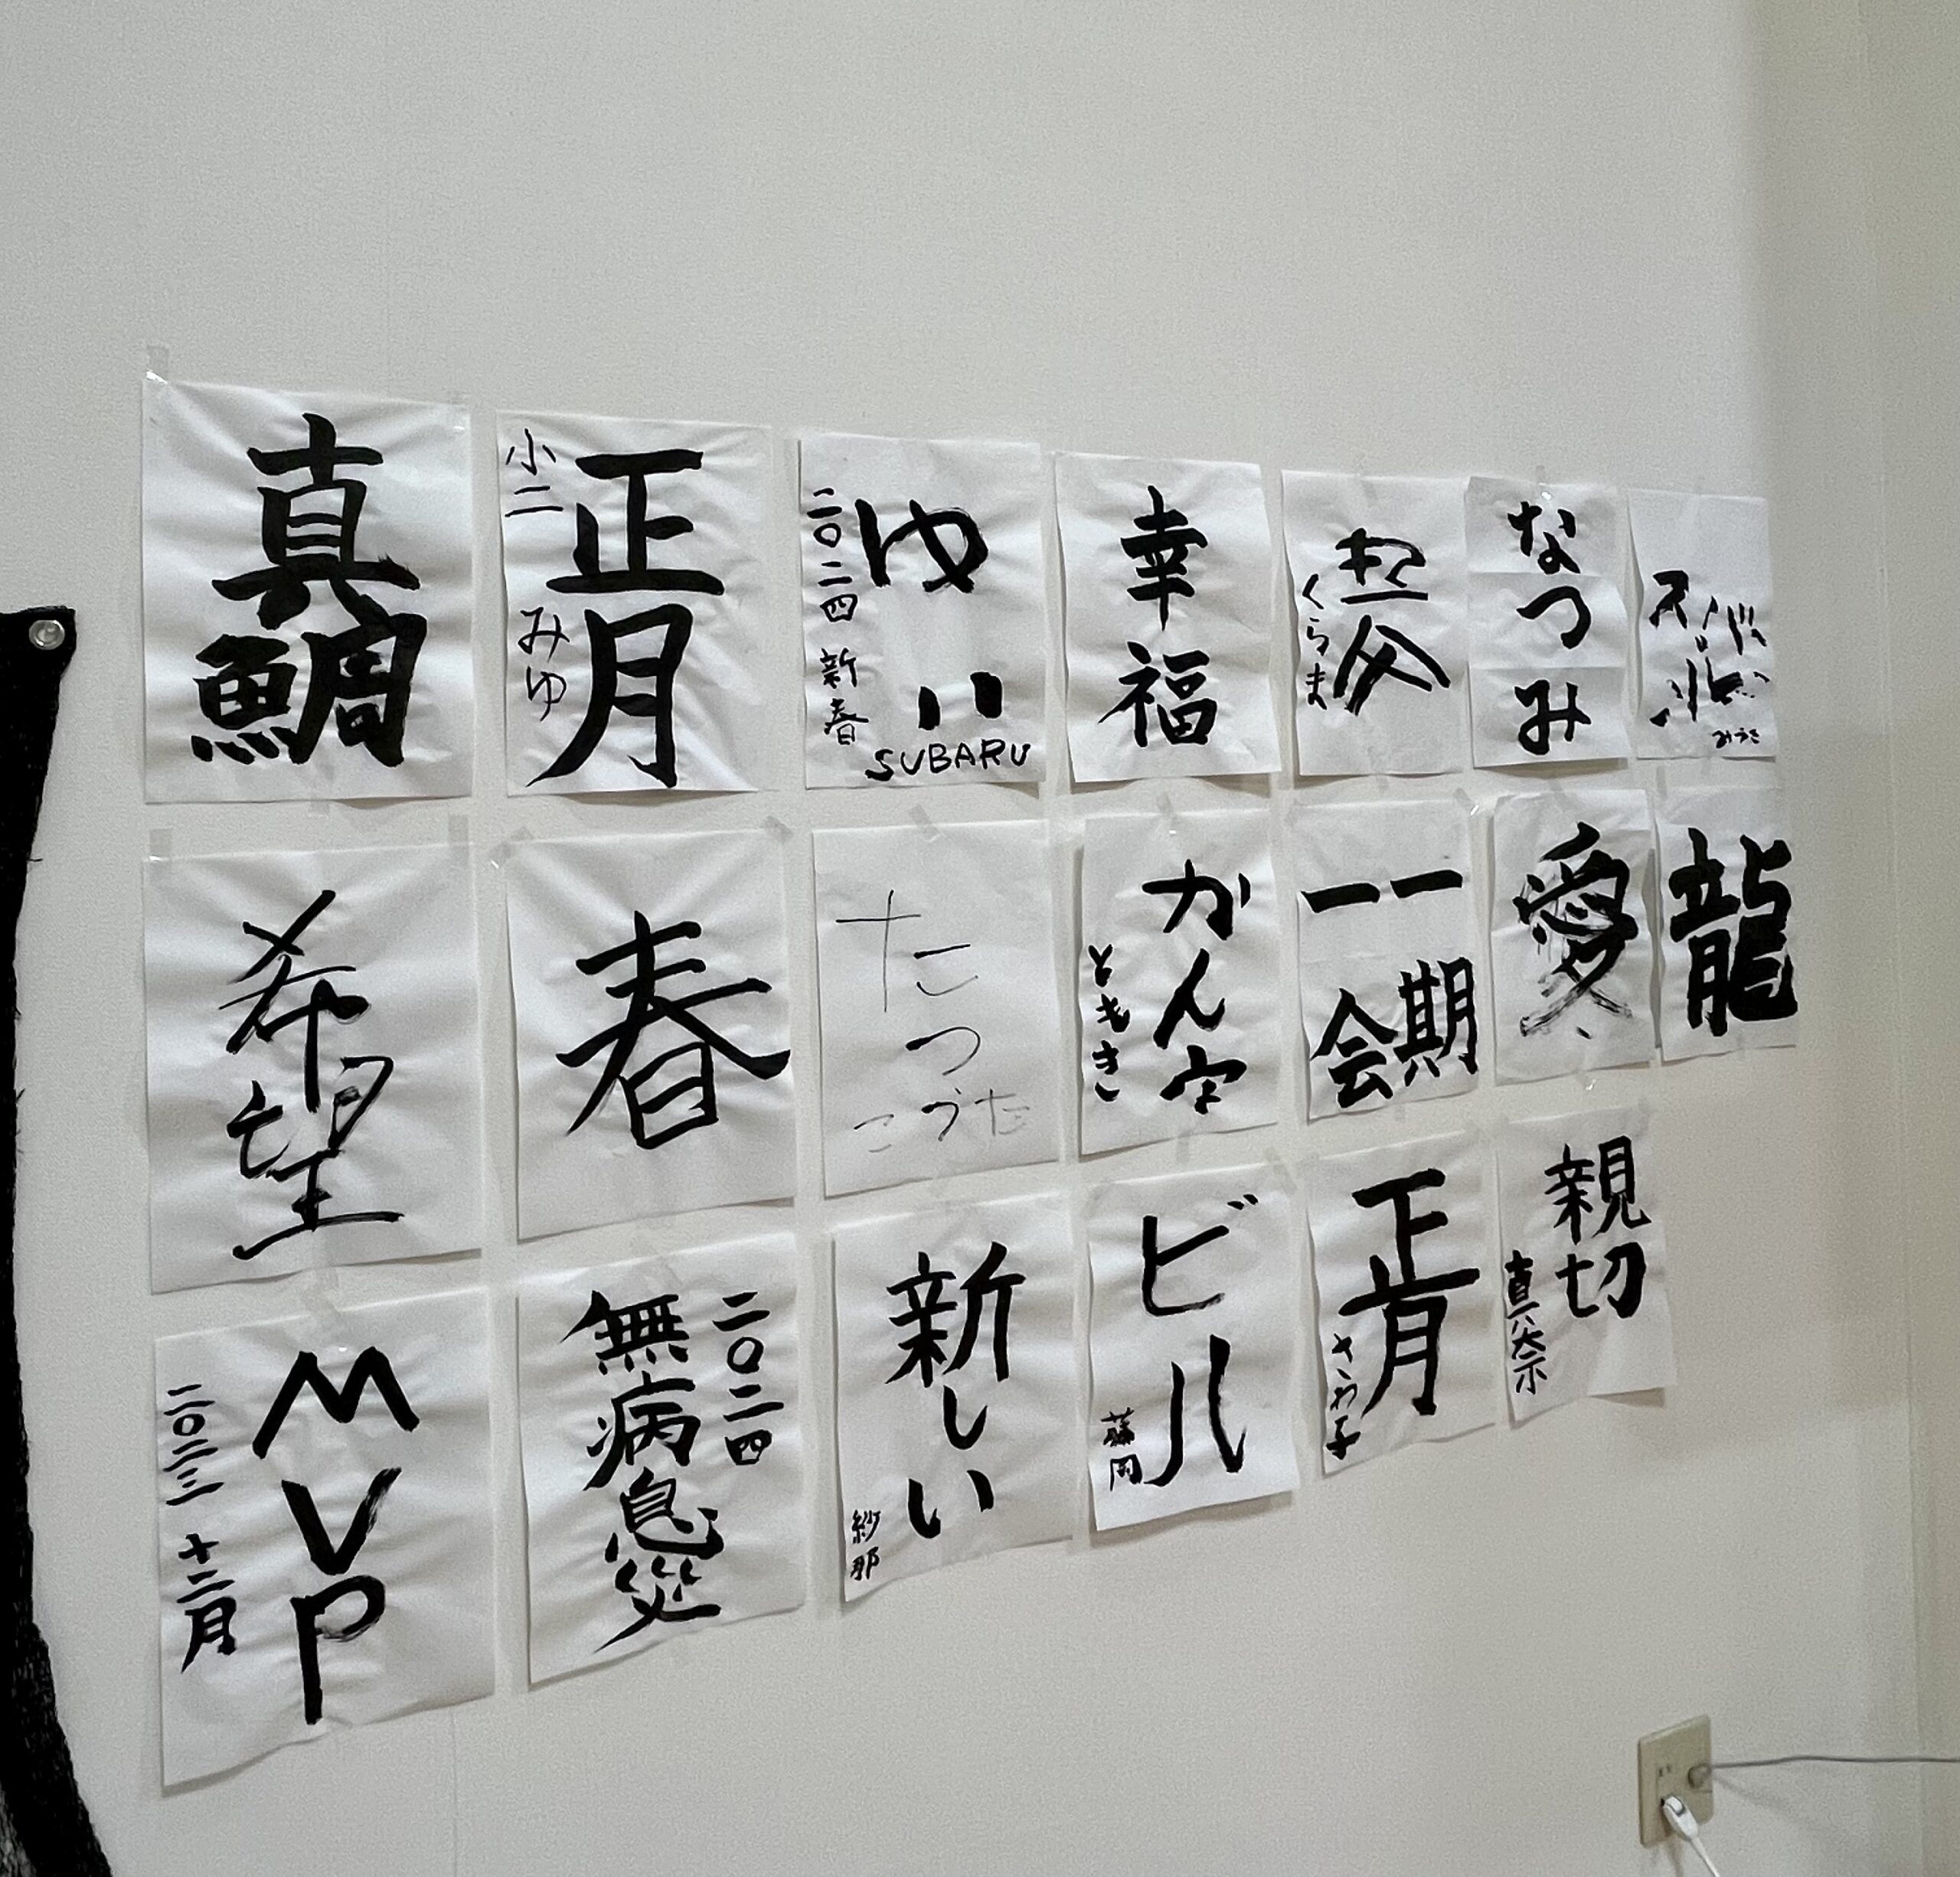 真鯛
正月
小二 みゆ
ゆい
二〇二四 新春
SUBARU
幸福
くらま
なつみ
みうき
希望
春
たつ
こうた
かん字
ともき
一期
一会
愛
龍
MVP
二〇二三 十二月
二〇二四
無病息災
新しい
紗那
ビル
藤岡
正月
さわ子
親切
真奈